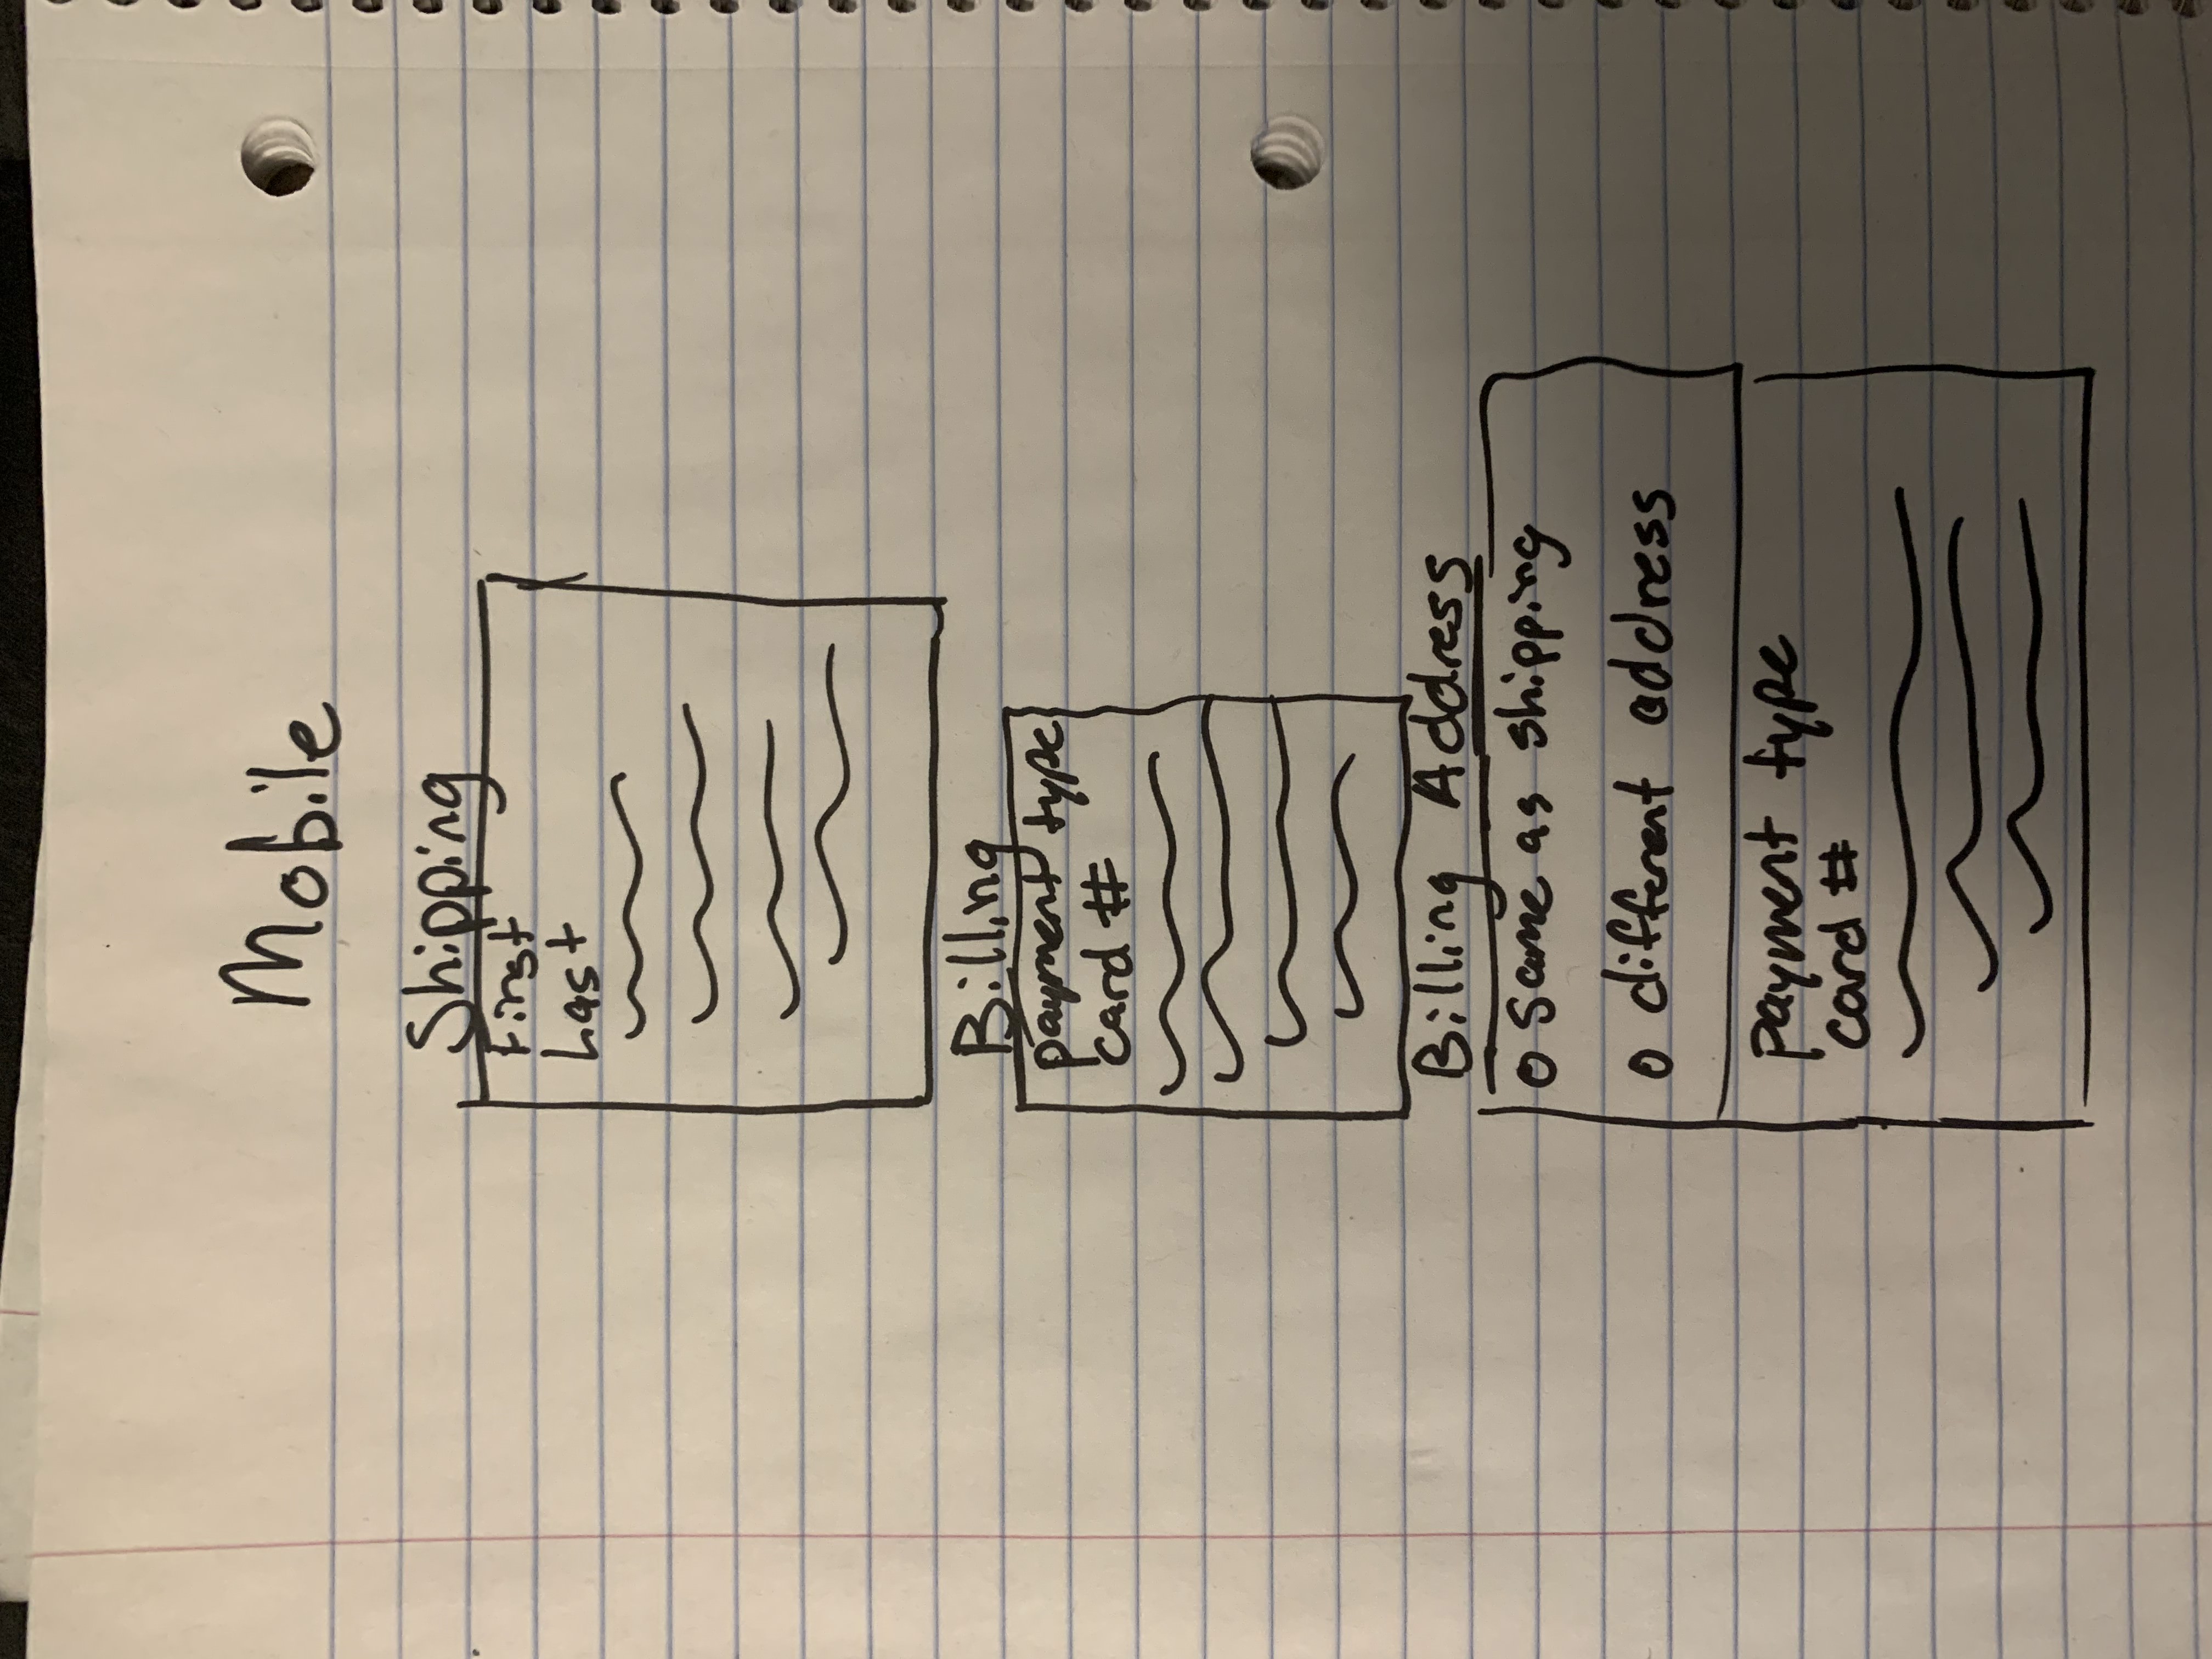 Mobile
Shipping
First
Last
Billing
payment type
card #
Billing Address
o same as shipping
o different address
payment type
card #